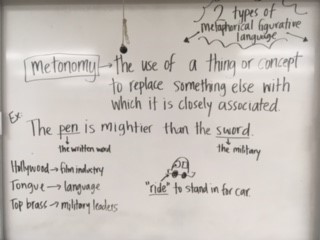 2 types of
metaphorical figurative
language
metonomy → the use of a thing or concept
to replace something else with
which it is closely associated.
Ex:
The pen is mightier than the sword.
the written word
the military
Hollywood → film industry
Tongue → language
Top brass → military leaders
"ride" to stand in for car